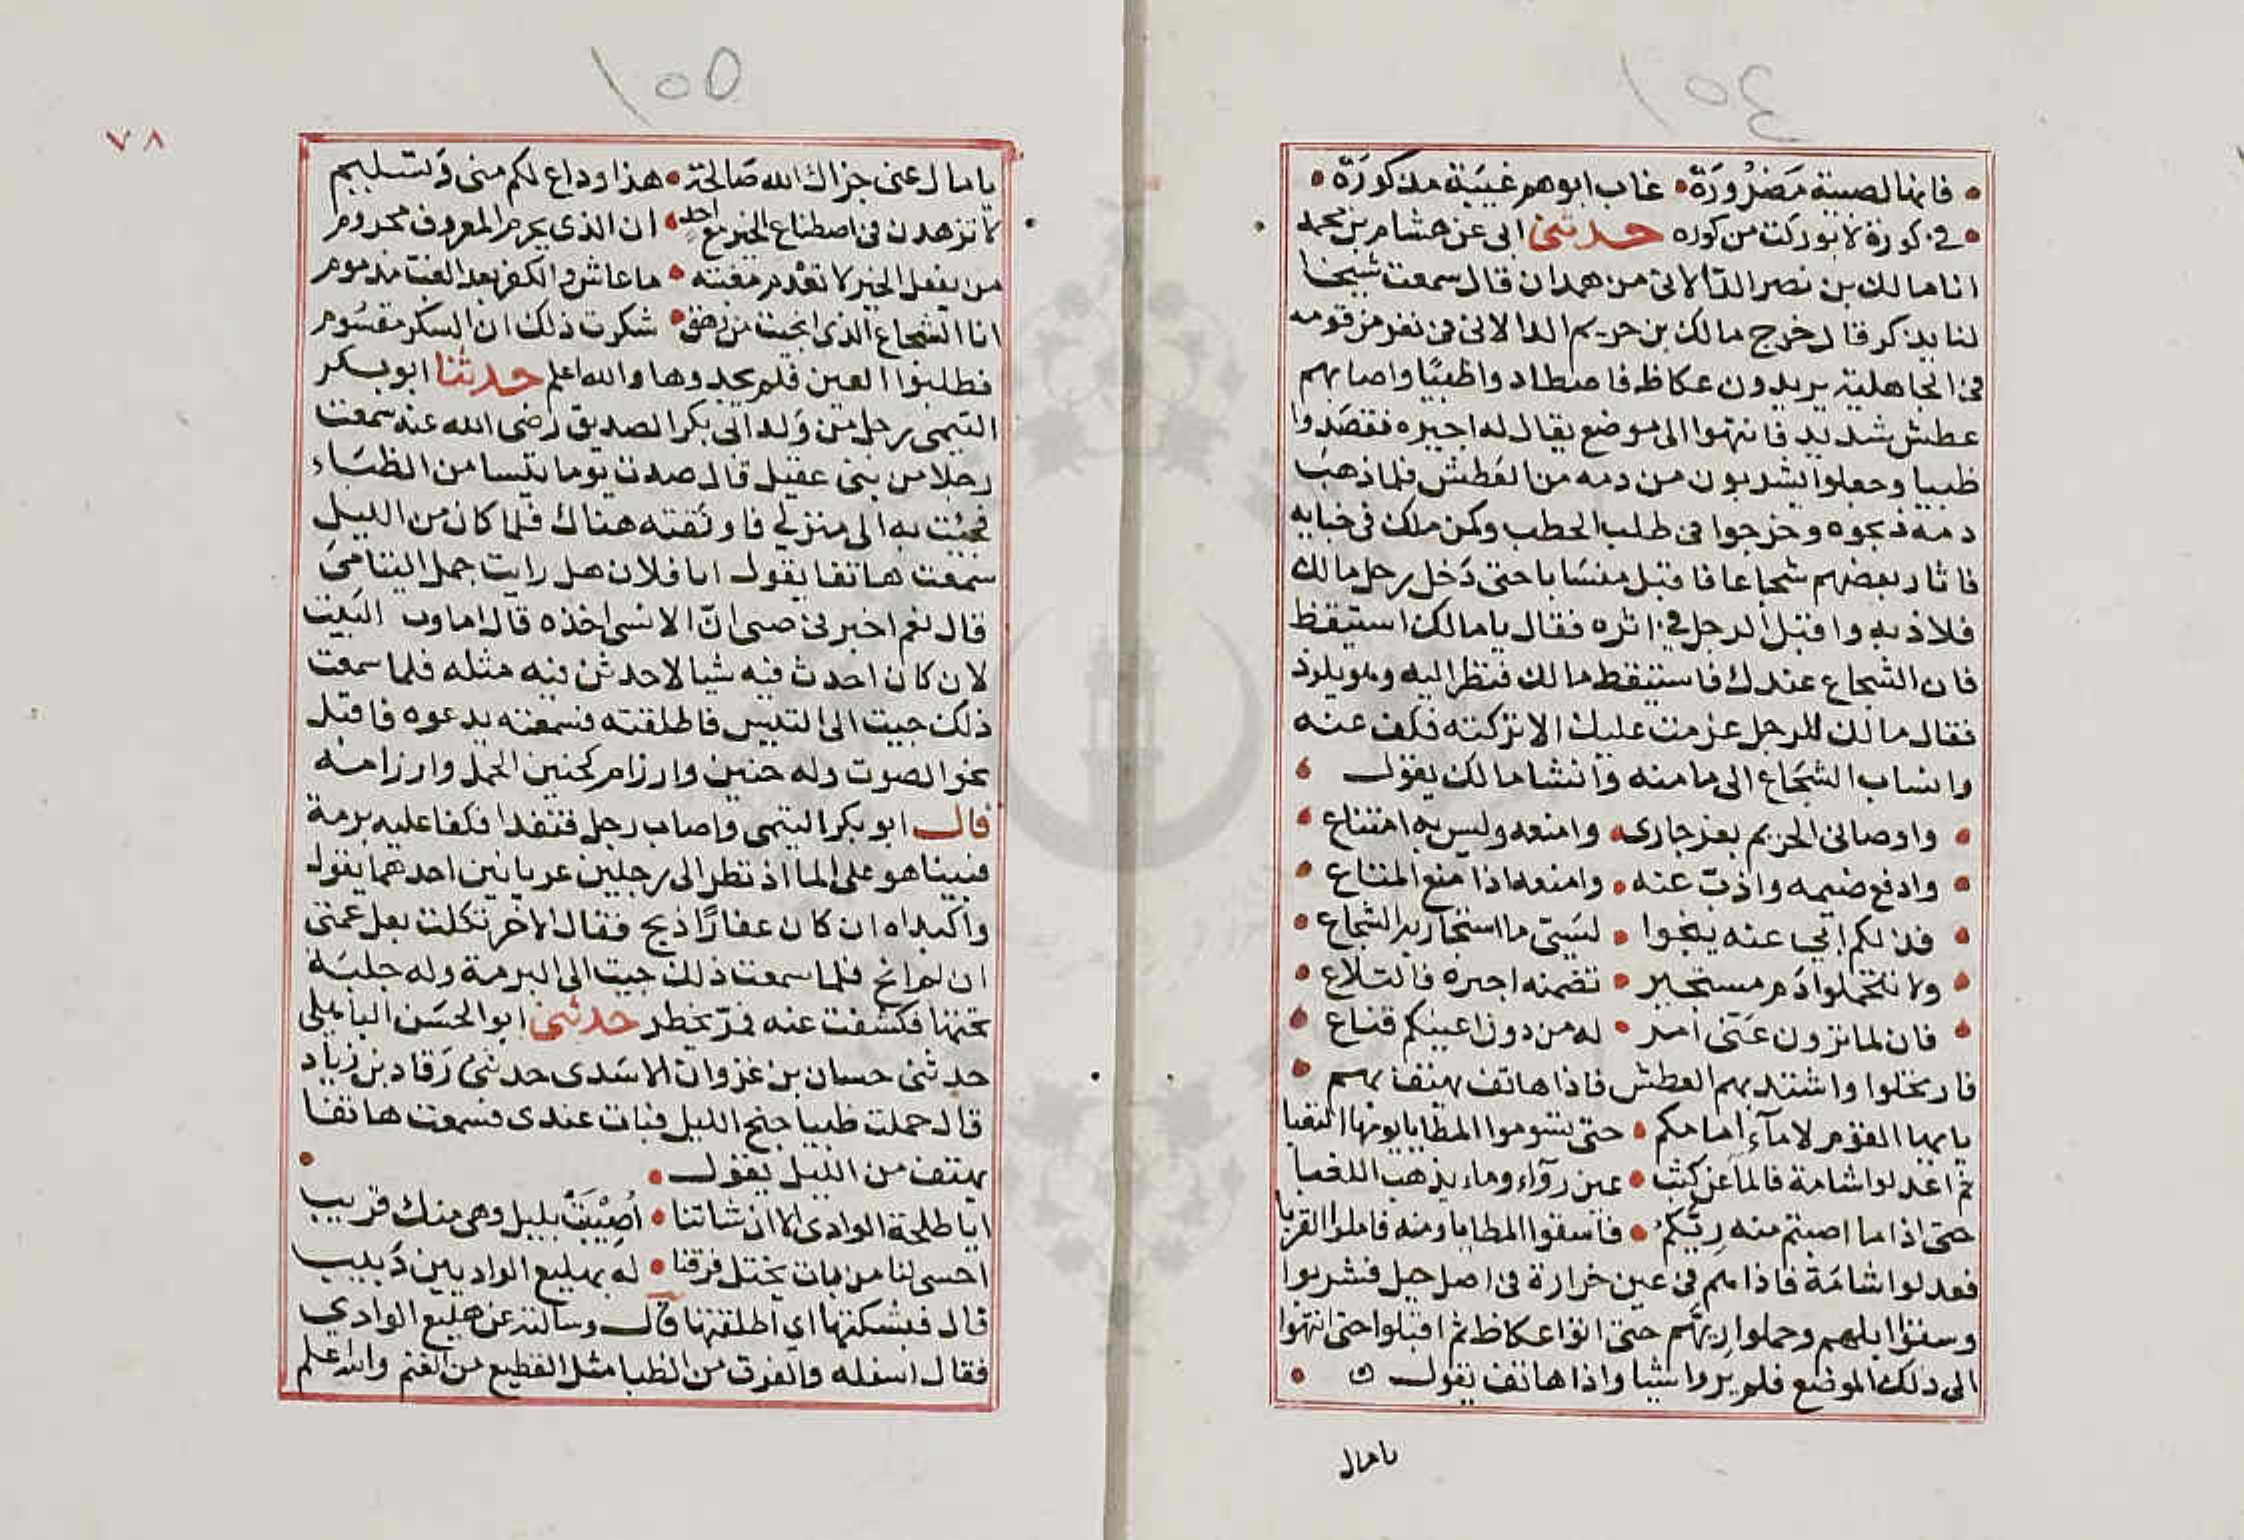 ١٥٤
فانها لصبية مضرورة • غاب ابوهم غيبة مذكورة •
في كورة لا بوركت من كوره حدثني ابي عن هشام بن محمد
انا مالك بن نصر الدالاني من همدان قال سمعت شيخا
لنا يذكر قال خرج مالك بن حريم الدالاني في نفر من قومه
في الجاهلية يريدون عكاظ فاصطادوا ظبيا واصابهم
عطش شديد فانتهوا الى موضع يقال له اجيره فقصدوا
ظبيا وجعلوا يشربون من دمه من العطش فلما ذهب
دمه ذبحوه وخرجوا في طلب الحطب وكمن مالك في خبايه
فاثار بعضهم شجاعا فاقبل منسابا حتى دخل رحل مالك
فلاذ به واقبل الرجل في اثره فقال يا مالك استيقظ
فان الشجاع عندك فاستيقظ مالك فنظر اليه وهو يلوذ
فقال مالك للرجل عزمت عليك الا تركته فكف عنه
وانساب الشجاع الى مامنه وانشا مالك يقول
• واوصاني الحريم بعز جاري • وامنعه وليس به امتناع •
• وادفع ضيمه واذب عنه • وامنعه اذا منع المتاع •
• فذلكم ابي عنه ينحوا • لشيء ما استجار بي الشجاع •
• ولا تتحملوا دم مستجير • تضمنه اجيره فالتلاع •
• فان لما ترون عني امر • له من دون اعينكم قناع •
فارتحلوا واشتد بهم العطش فاذا هاتف يهتف بهم •
يايها القوم لا مآء امامكم • حتى تسوموا المطايا يومها التعبا
ثم اعدلوا شامة فالما عن كثب • عين روآء وماء يذهب اللغبا
حتى اذا ما اصبتم منه ريكم • فاسقوا المطايا ومنه فاملوا القربا
فعدلوا شامة فاذا هم في عين خرارة في اصل جبل فشربوا
وسقوا ابلهم وحملوا ريهم حتى اتوا عكاظ ثم اقبلوا حتى انتهوا
الى ذلك الموضع فلم يروا شيا واذا هاتف يقول •
يا مال
١٥٥
٧٨
يا مال عني جزاك الله صالحة • هذا وداع لكم مني وتسليم
لا تزهدن في اصطناع الخير مع احد • ان الذي يحرم المعروف محروم
من يفعل الخير لا تعدم مغبته • ما عاش والكفر بعد الغب مذموم
انا الشجاع الذي انجيت من رهق • شكرت ذلك ان الشكر مقسوم
فطلبوا العين فلم يجدوها والله اعلم حدثنا ابو بكر
التيمي رجل من ولد ابي بكر الصديق رضى الله عنه سمعت
رجلا من بني عقيل قال صدت يوما تيسا من الظباء
فجئت به الى منزلي فاوثقته هناك فلما كان من الليل
سمعت هاتفا يقول ايا فلان هل رايت جمل اليتامى
قال نعم اخبرني صبي ان الانسي اخذه قال اما ورب البيت
لان كان احدث فيه شيا لاحدثن فيه مثله فلما سمعت
ذلك جيت الى التيس فاطلقته فسمعته يدعوه فاقبل
نحو الصوت وله حنين وارزام كحنين الجمل وارزامه
قال ابو بكر التيمي واصاب رجل قنفدا فكفا عليه برمة
فبينا هو على الما اذ نظر الى رجلين عريانين احدهما يقول
واكبداه ان كان عفارا ذبح فقال الاخر ثكلت بعل عمتي
ان لم انح فلما سمعت ذلك جيت الى البرمة وله جلبة
تحتها فكشفت عنه فمر يخطر حدثني ابو الحسن الباهلي
حدثني حسان بن غزوان الاسدي حدثني رقاد بن زياد
قال حملت ظبيا جنح الليل فبات عندي فسمعت هاتفا
يهتف من الليل يقول •
ايا طلحة الوادي الا ان شاتنا • اصيبت بليل وهي منك قريب
احسي لنا من بات يختل فرقنا • له بهليع الواديين دبيب
قال فبشكتها اي اطلقتها قال وسالته عن هليع الوادي
فقال اسفله والفرق من الظبا مثل القطيع من الغنم والله اعلم